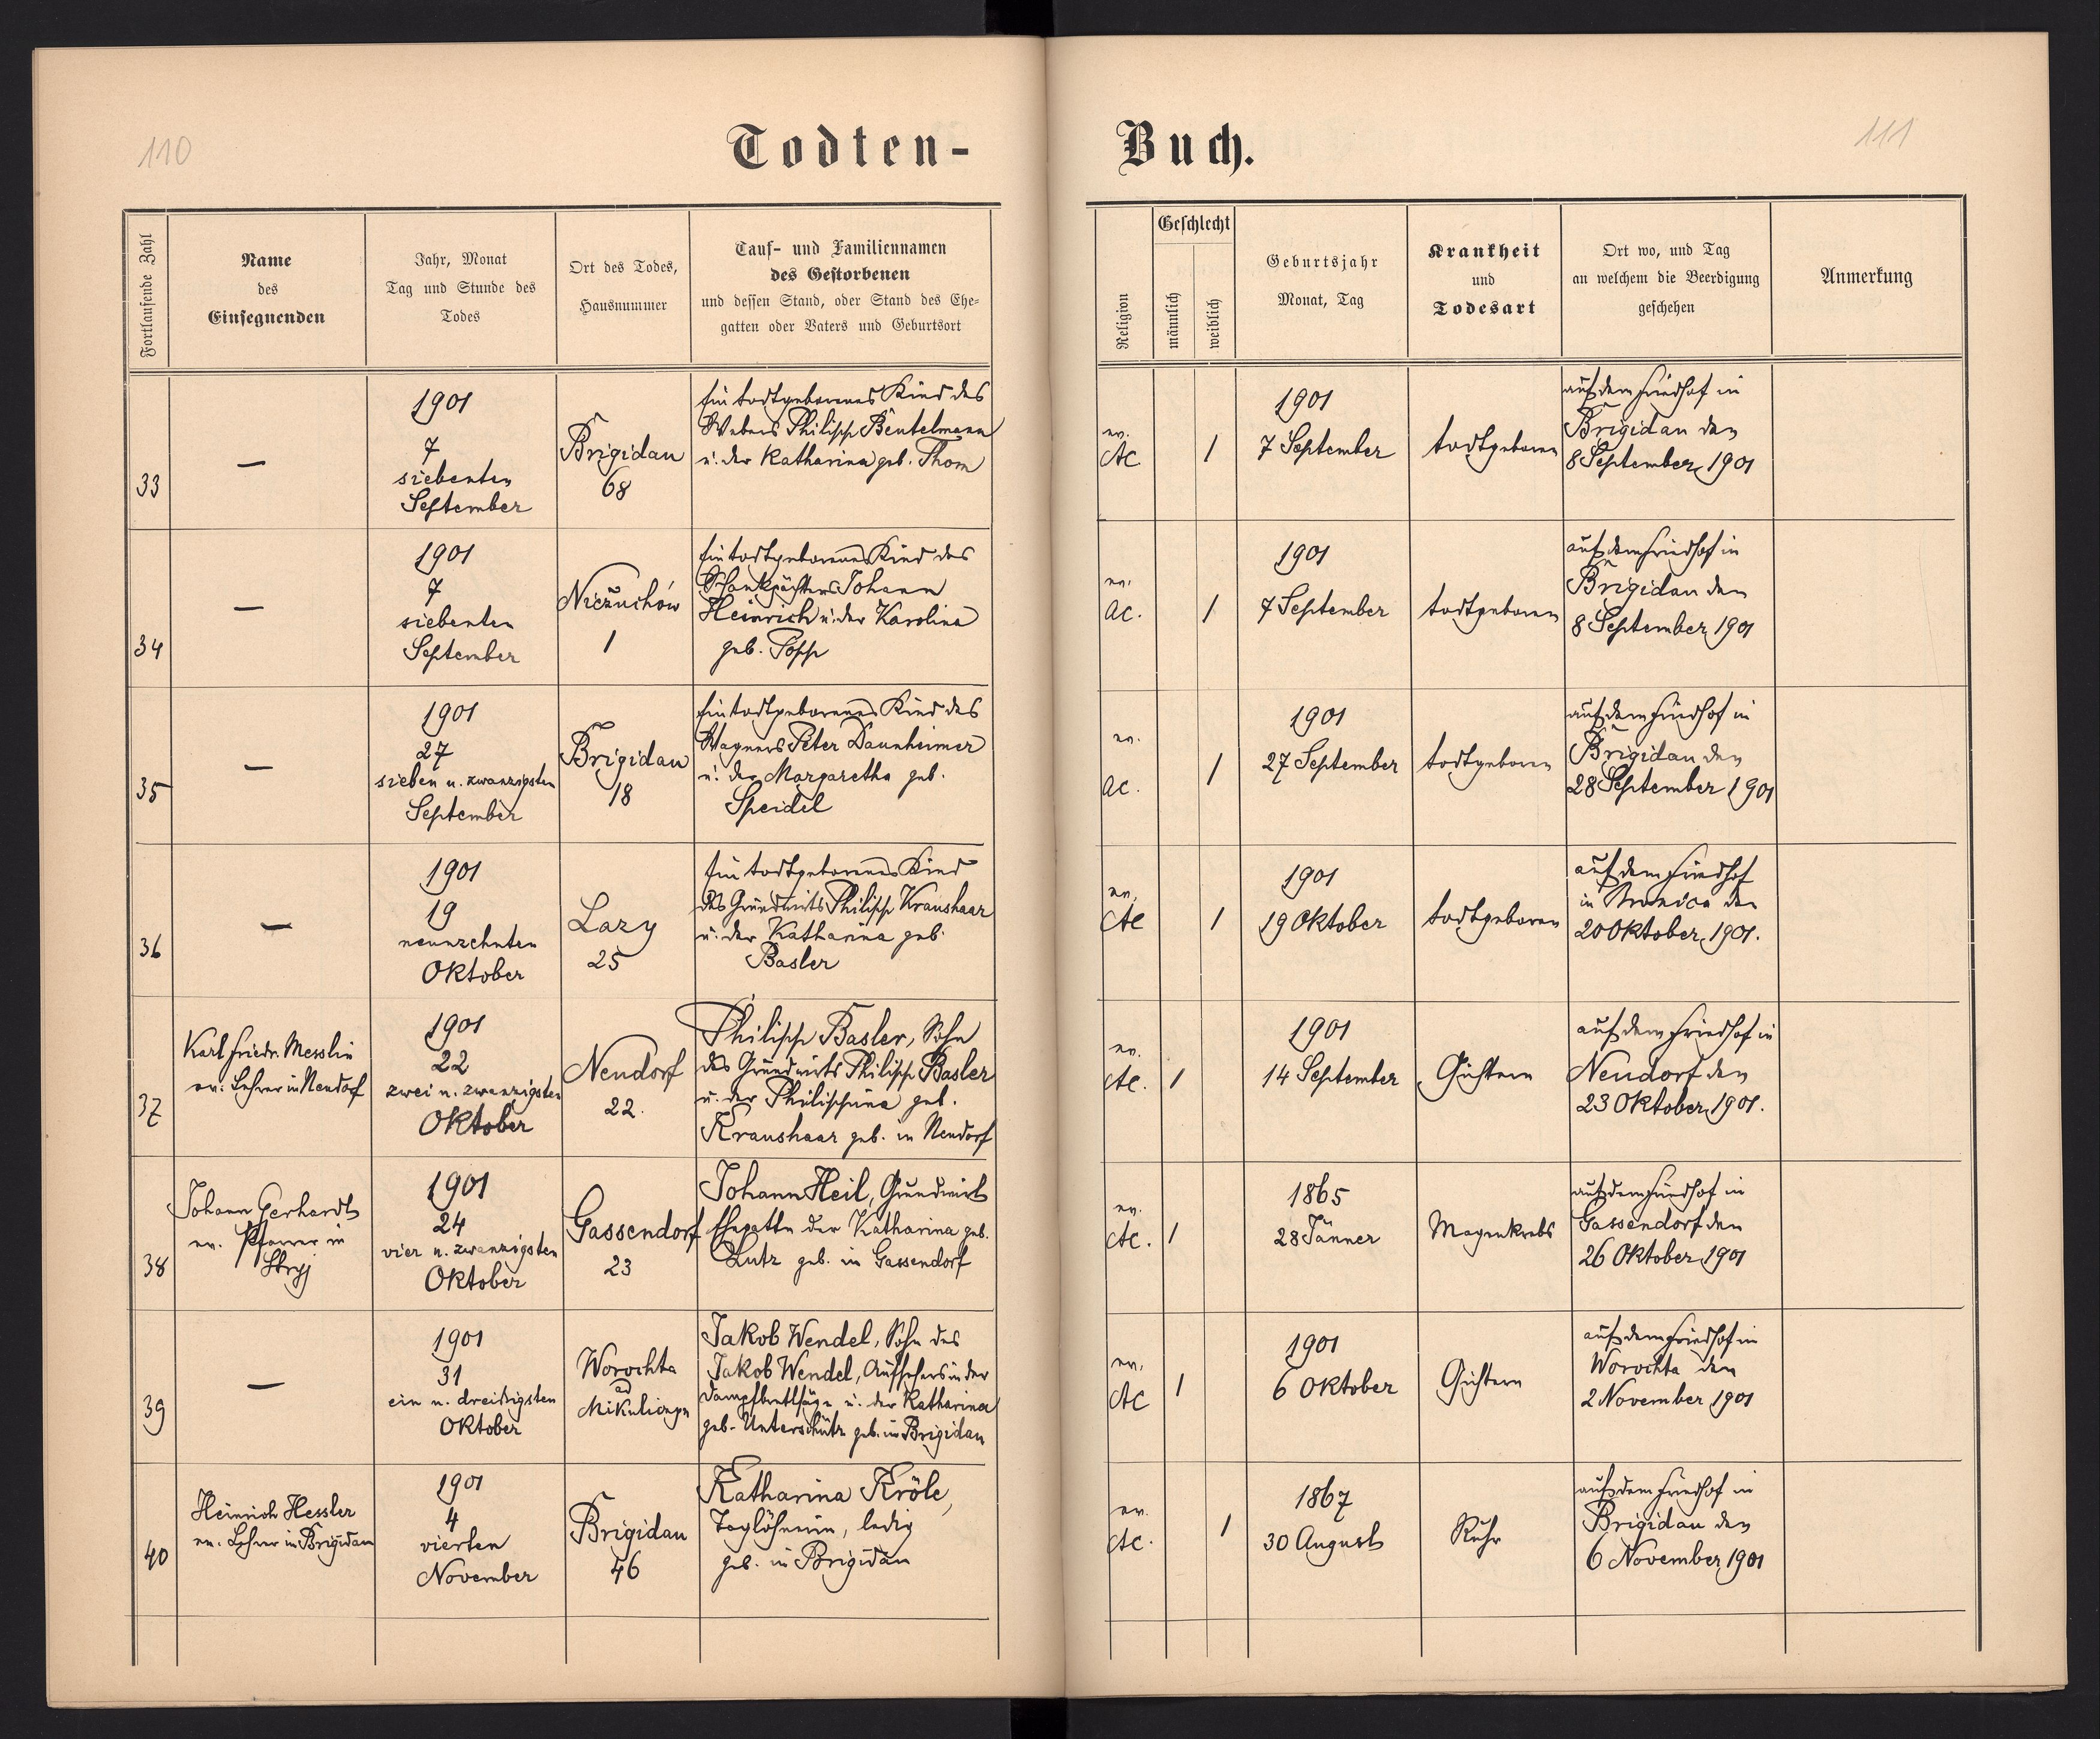 110
Todten-
Buch.
111
Fortlaufende Zahl
Name
des
Einsegnenden
Jahr, Monat
Tag und Stunde des
Todes
Ort des Todes,
Hausnummer
Tauf- und Familiennamen
des Gestorbenen
und dessen Stand, oder Stand des Ehe=
gatten oder Vaters und Geburtsort
Religion
Geschlecht
männlich
weiblich
Geburtsjahr
Monat, Tag
Krankheit
und
Todesart
Ort wo, und Tag
an welchem die Beerdigung
geschehen
Anmerkung
33
—
1901
7
siebenten
September
Brigidau
68
Ein todtgeborenes Kind des
Webers Philipp Beutelmann
u. der Katharina geb. Thom
ev.
AC
1
1901
7 September
todtgeboren
auf dem Friedhof in
Brigidau den
8 September 1901
34
—
1901
7
siebenten
September
Niezuchów
1
Ein todtgeborenes Kind des
Schankpächters Johann
Heinrich u. der Karolina
geb. Popp
ev.
ac.
1
1901
7 September
todtgeboren
auf dem Friedhof in
Brigidau den
8 September 1901
35
—
1901
27
sieben u. zwanzigsten
September
Brigidau
18
Ein todtgeborenes Kind des
Wagners Peter Daunheimer
u. der Margaretha geb.
Speidel
ev.
ac.
1
1901
27 September
todtgeboren
auf dem Friedhof in
Brigidau den
28 September 1901
36
—
1901
19
neunzehnten
Oktober
Lazy
25
Ein todtgeborenes Kind
des Grundwirts Philipp Kraushaar
u. der Katharina geb.
Basler
ev.
AC
1
1901
19 Oktober
todtgeboren
auf dem Friedhof
in den
20 Oktober 1901.
37
Karl Friedr. Messlin
ev. Lehrer in Neudorf
1901
22
zwei u. zwanzigsten
Oktober
Neudorf
22.
Philipp Basler, Sohn
des Grundwirts Philipp Basler
u. der Philippine geb.
Kraushaar geb. in Neudorf
ev.
AC.
1
1901
14 September
Gichtern
auf dem Friedhof in
Neudorf den
23 Oktober 1901.
38
Johann Gerhardt
ev. Pfarrer in
Stryj
1901
24
vier u. zwanzigsten
Oktober
Gassendorf
23
Johann Heil, Grundwirt
Ehegatte der Katharina geb.
Lutz geb. in Gassendorf
ev.
AC.
1
1865
28 Jänner
Magenkrebs
auf dem Friedhof in
Gassendorf den
26 Oktober 1901
39
—
1901
31
ein u. dreißigsten
Oktober
Worochta
ad
Mikuliczyn
Jakob Wendel, Sohn des
Jakob Wendel, Aufsehers in der
Dampfbrettsäge u. der Katharina
geb. Unterschütz geb. in Brigidau
ev.
AC
1
1901
6 Oktober
Gichtern
auf dem Friedhof in
Worochta den
2 November 1901
40
Heinrich Hessler
ev. Lehrer in Brigidau
1901
4
vierten
November
Brigidau
46
Katharina Kröle,
Taglöhnerin, ledig
geb. in Brigidau
ev.
AC.
1
1867
30 August
Ruhr
auf dem Friedhof in
Brigidau den
6 November 1901